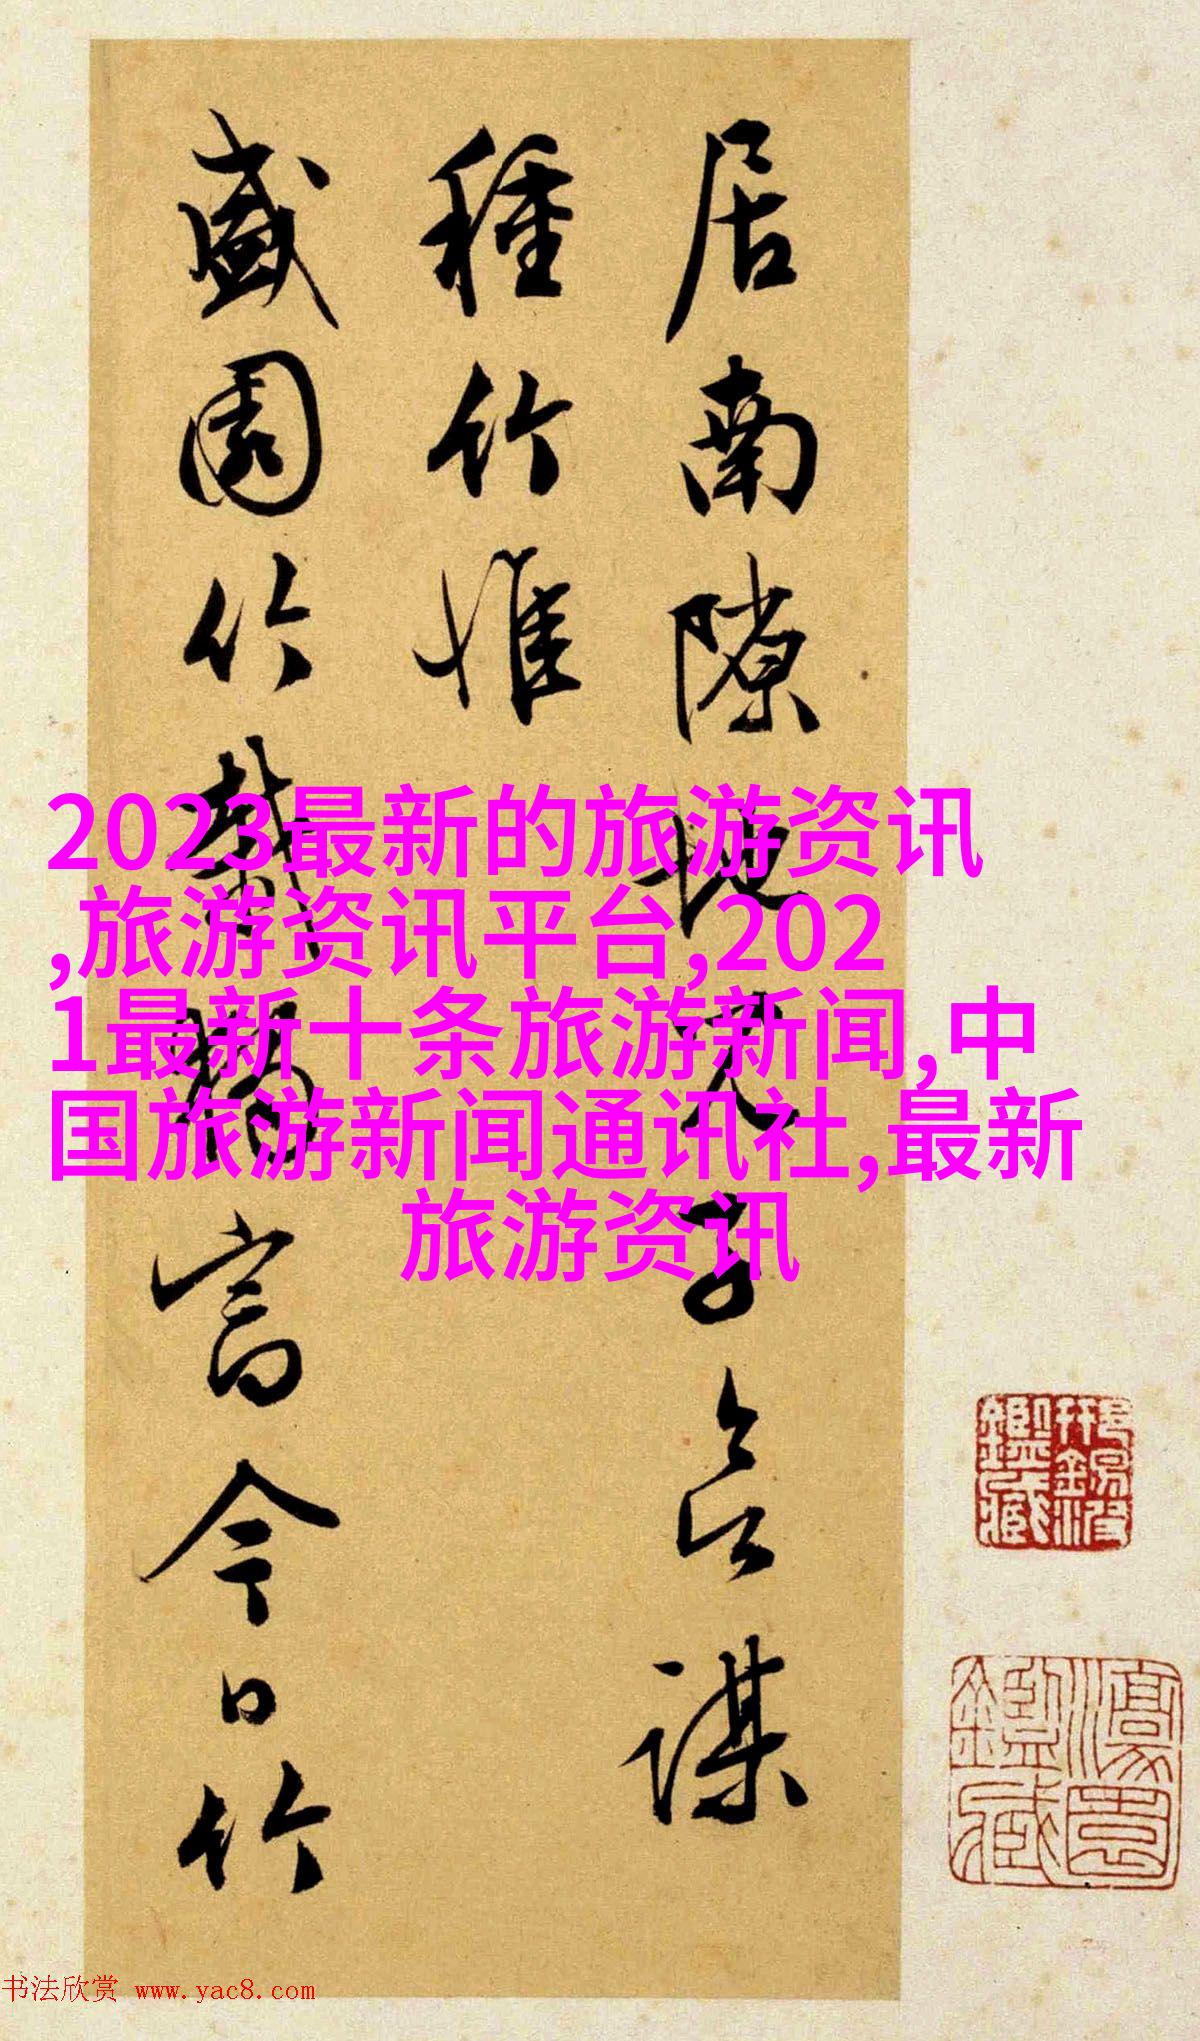 居南隙地謀
種竹惟
盛園竹今日竹
2023最新的旅游资讯
,旅游资讯平台,202
1最新十条旅游新闻,中
国旅游新闻通讯社,最新
旅游资讯
鑑藏
鑑藏
书法欣赏 www.yac8.com